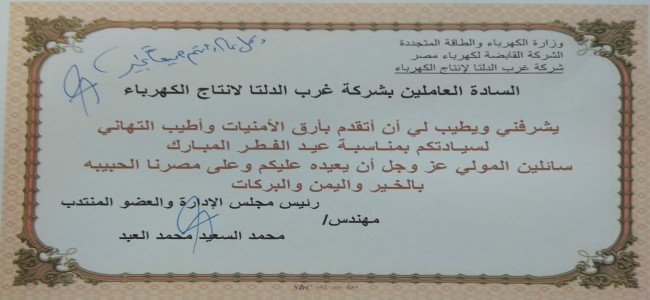 وزارة الكهرباء والطاقة المتجددة
الشركة القابضة لكهرباء مصر
شركة غرب الدلتا لإنتاج الكهرباء
وكل عام وأنتم جميعا بخير
السادة العاملين بشركة غرب الدلتا لانتاج الكهرباء
يشرفني ويطيب لي أن أتقدم بأرق الأمنيات وأطيب التهاني
لسيادتكم بمناسبة عيد الفطر المبارك
سائلين المولي عز وجل أن يعيده عليكم وعلى مصرنا الحبيبه
بالخير واليمن والبركات
رئيس مجلس الإدارة والعضو المنتدب
مهندس/
محمد السعيد محمد العبد